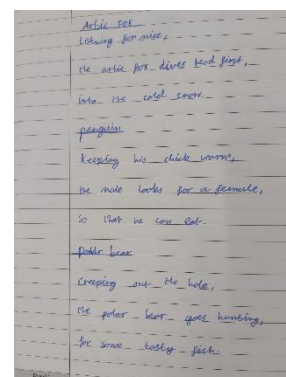 Arbic Fox
Listning for mise,
the arbic fox dives head first,
into the cold snow.
penguin
Keeping his chick worm,
the male looks for a female,
So that he can eat.
Polar bear
Creeping out the hole,
the polar bear goes hunting,
for some tasty fish.